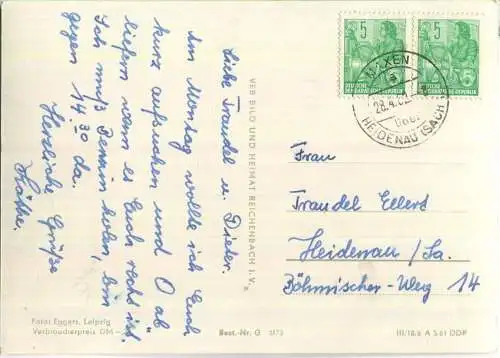 Liebe Traudel u. Dieter.
Am Montag wollte ich Euch
kurz aufsuchen und O ab
liefern wenn es Euch recht ist.
Ich muß Benzin holen, bin
gegen 14.30 da.
Herzliche Grüße
Käthe.
VEB BILD UND HEIMAT REICHENBACH I. V.
5
DEUTSCHE
DEMOKRATISCHE REPUBLIK
5
DEUTSCHE
DEMOKRATISCHE REPUBLIK
MAXEN
28.4.62
HEIDENAU (SACHS)
Frau
Traudel Ellerd
Heidenau / Sa.
Böhmischer-Weg 14
Foto: Eggers, Leipzig
Verbraucherpreis DM
Best.-Nr. G
III/18/6 A 5 61 DDR